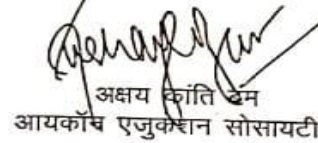 अक्षय कांति बम
आयकॉन एजुकेशन सोसायटी